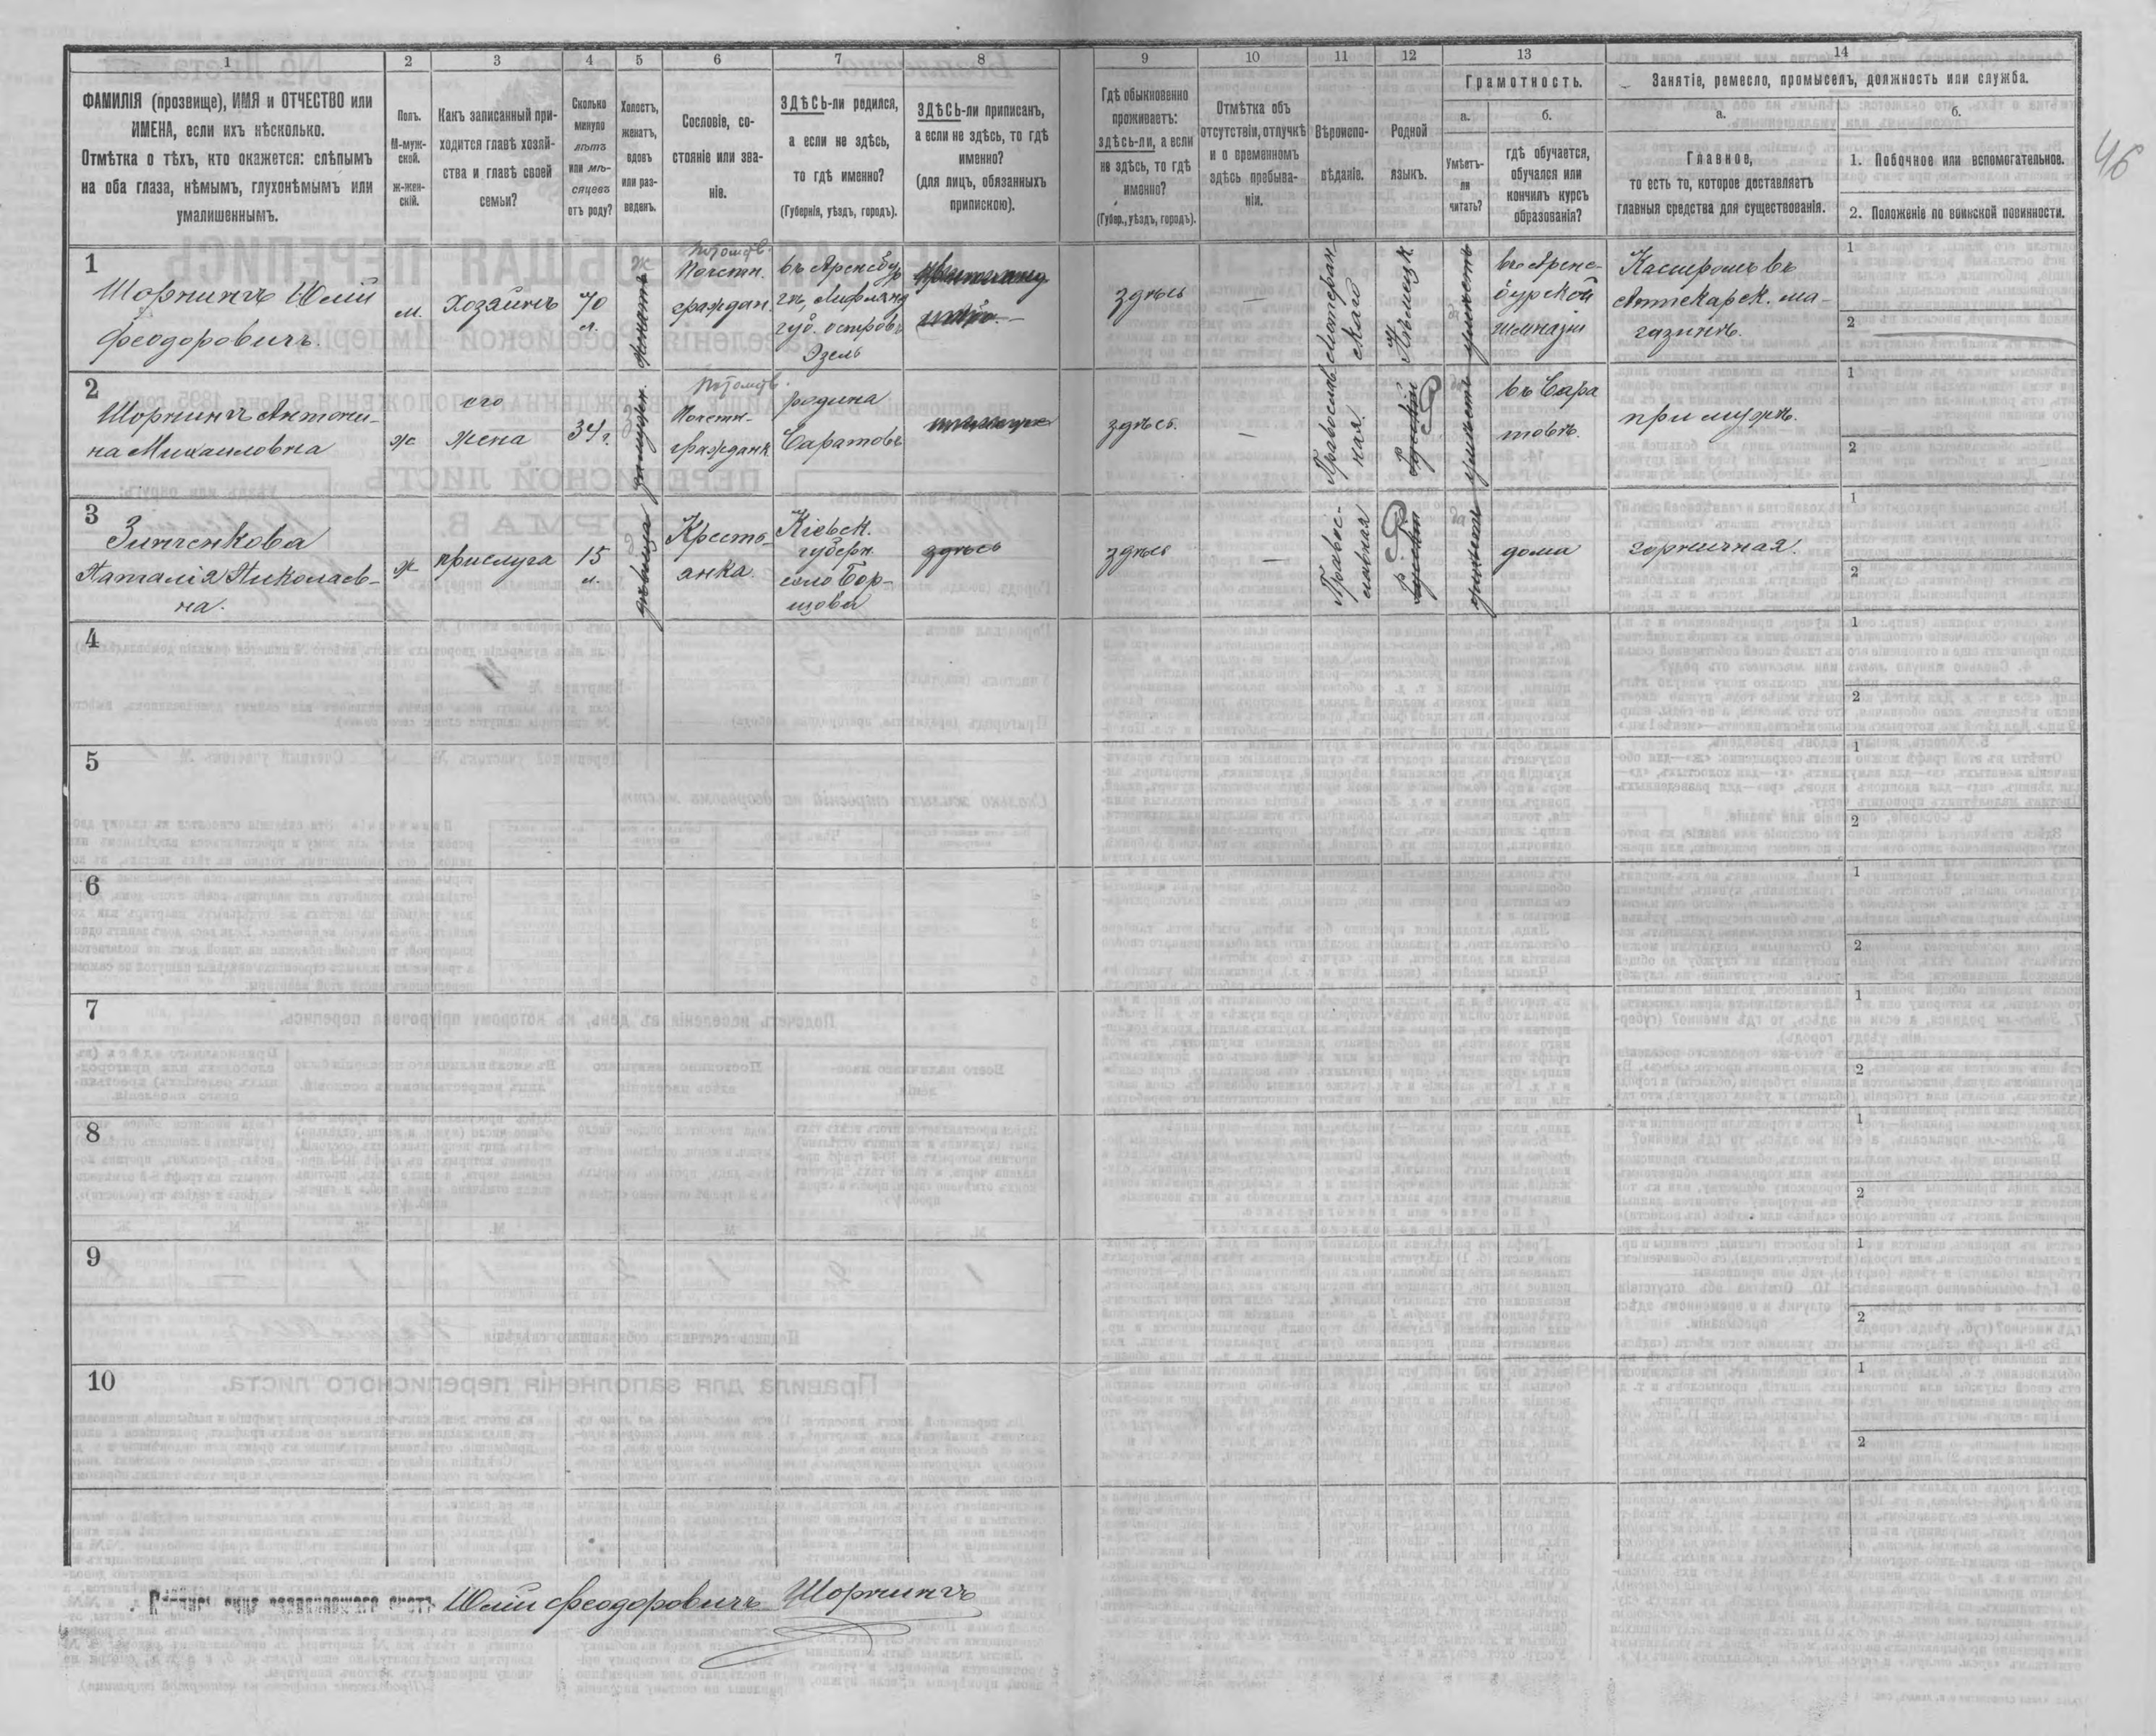 46
1
2
3
4
5
6
7
8
9
10
11
12
13
14
ФАМИЛІЯ (прозвище), ИМЯ и ОТЧЕСТВО или
ИМЕНА, если ихъ нѣсколько.
Отмѣтка о тѣхъ, кто окажется: слѣпымъ
на оба глаза, нѣмымъ, глухонѣмымъ или
умалишеннымъ.
Полъ.
М-муж-
ской.
ж-жен-
скій.
Какъ записанный при-
ходится главѣ хозяй-
ства и главѣ своей
семьи?
Сколько
минуло
лѣтъ
или мѣ-
сяцевъ
отъ роду?
Холостъ,
женатъ,
вдовъ
или раз-
веденъ.
Сословіе, со-
стояніе или зва-
ніе.
ЗДѢСЬ-ли родился,
а если не здѣсь,
то гдѣ именно?
(Губернія, уѣздъ, городъ).
ЗДѢСЬ-ли приписанъ,
а если не здѣсь, то гдѣ
именно?
(для лицъ, обязанныхъ
припискою).
Гдѣ обыкновенно
проживаетъ:
здѣсь-ли, а если
не здѣсь, то гдѣ
именно?
(Губер., уѣздъ, городъ).
Отмѣтка объ
отсутствіи, отлучкѣ
и о временномъ
здѣсь пребыва-
ніи.
Вѣроиспо-
вѣданіе.
Родной
языкъ.
Грамотность.
а.
Умѣетъ-
ли
читать?
б.
гдѣ обучается,
обучался или
кончилъ курсъ
образованія?
Занятіе, ремесло, промыселъ, должность или служба.
а.
Главное,
то есть то, которое доставляетъ
главныя средства для существованія.
б.
1. Побочное или вспомогательное.
2. Положеніе по воинской повинности.
1
Шорнингъ Юлій
Феодоровичъ.
м.
Хозяинъ
70
л.
ж
женатъ
потомств.
Почетн.
граждан.
въ Аренсбур
гѣ, Лифлянд
губ. островъ
Эзель
здѣсь
—
Лютеран
скаго
Нѣмецк.
умѣетъ
въ Аренс-
бургской
гимназіи
Кассиромъ въ
Аптекарск. ма-
газинѣ.
1
2
2
Шорнингъ Антони-
на Михаиловна
ж
его
жена
34 г.
замужн.
потомств.
Почетн.
Гражданк
родина
Саратовъ
здѣсь.
—
Православ
ная.
Русскій
умѣетъ
въ Сара
товѣ.
при мужѣ.
1
2
3
Зинченкова
Наталія Николаев-
на.
ж
прислуга
15
л.
дѣвица
Кресть-
янка.
Кіевск.
губерн.
село Бор-
щовка
здѣсь
здѣсь
—
Правос-
лавная
Русскій
умѣетъ
дома
горничная.
1
2
4
1
2
5
1
2
6
1
2
7
1
2
8
1
2
9
1
2
10
1
2
Юлій Феодоровичъ Шорнингъ